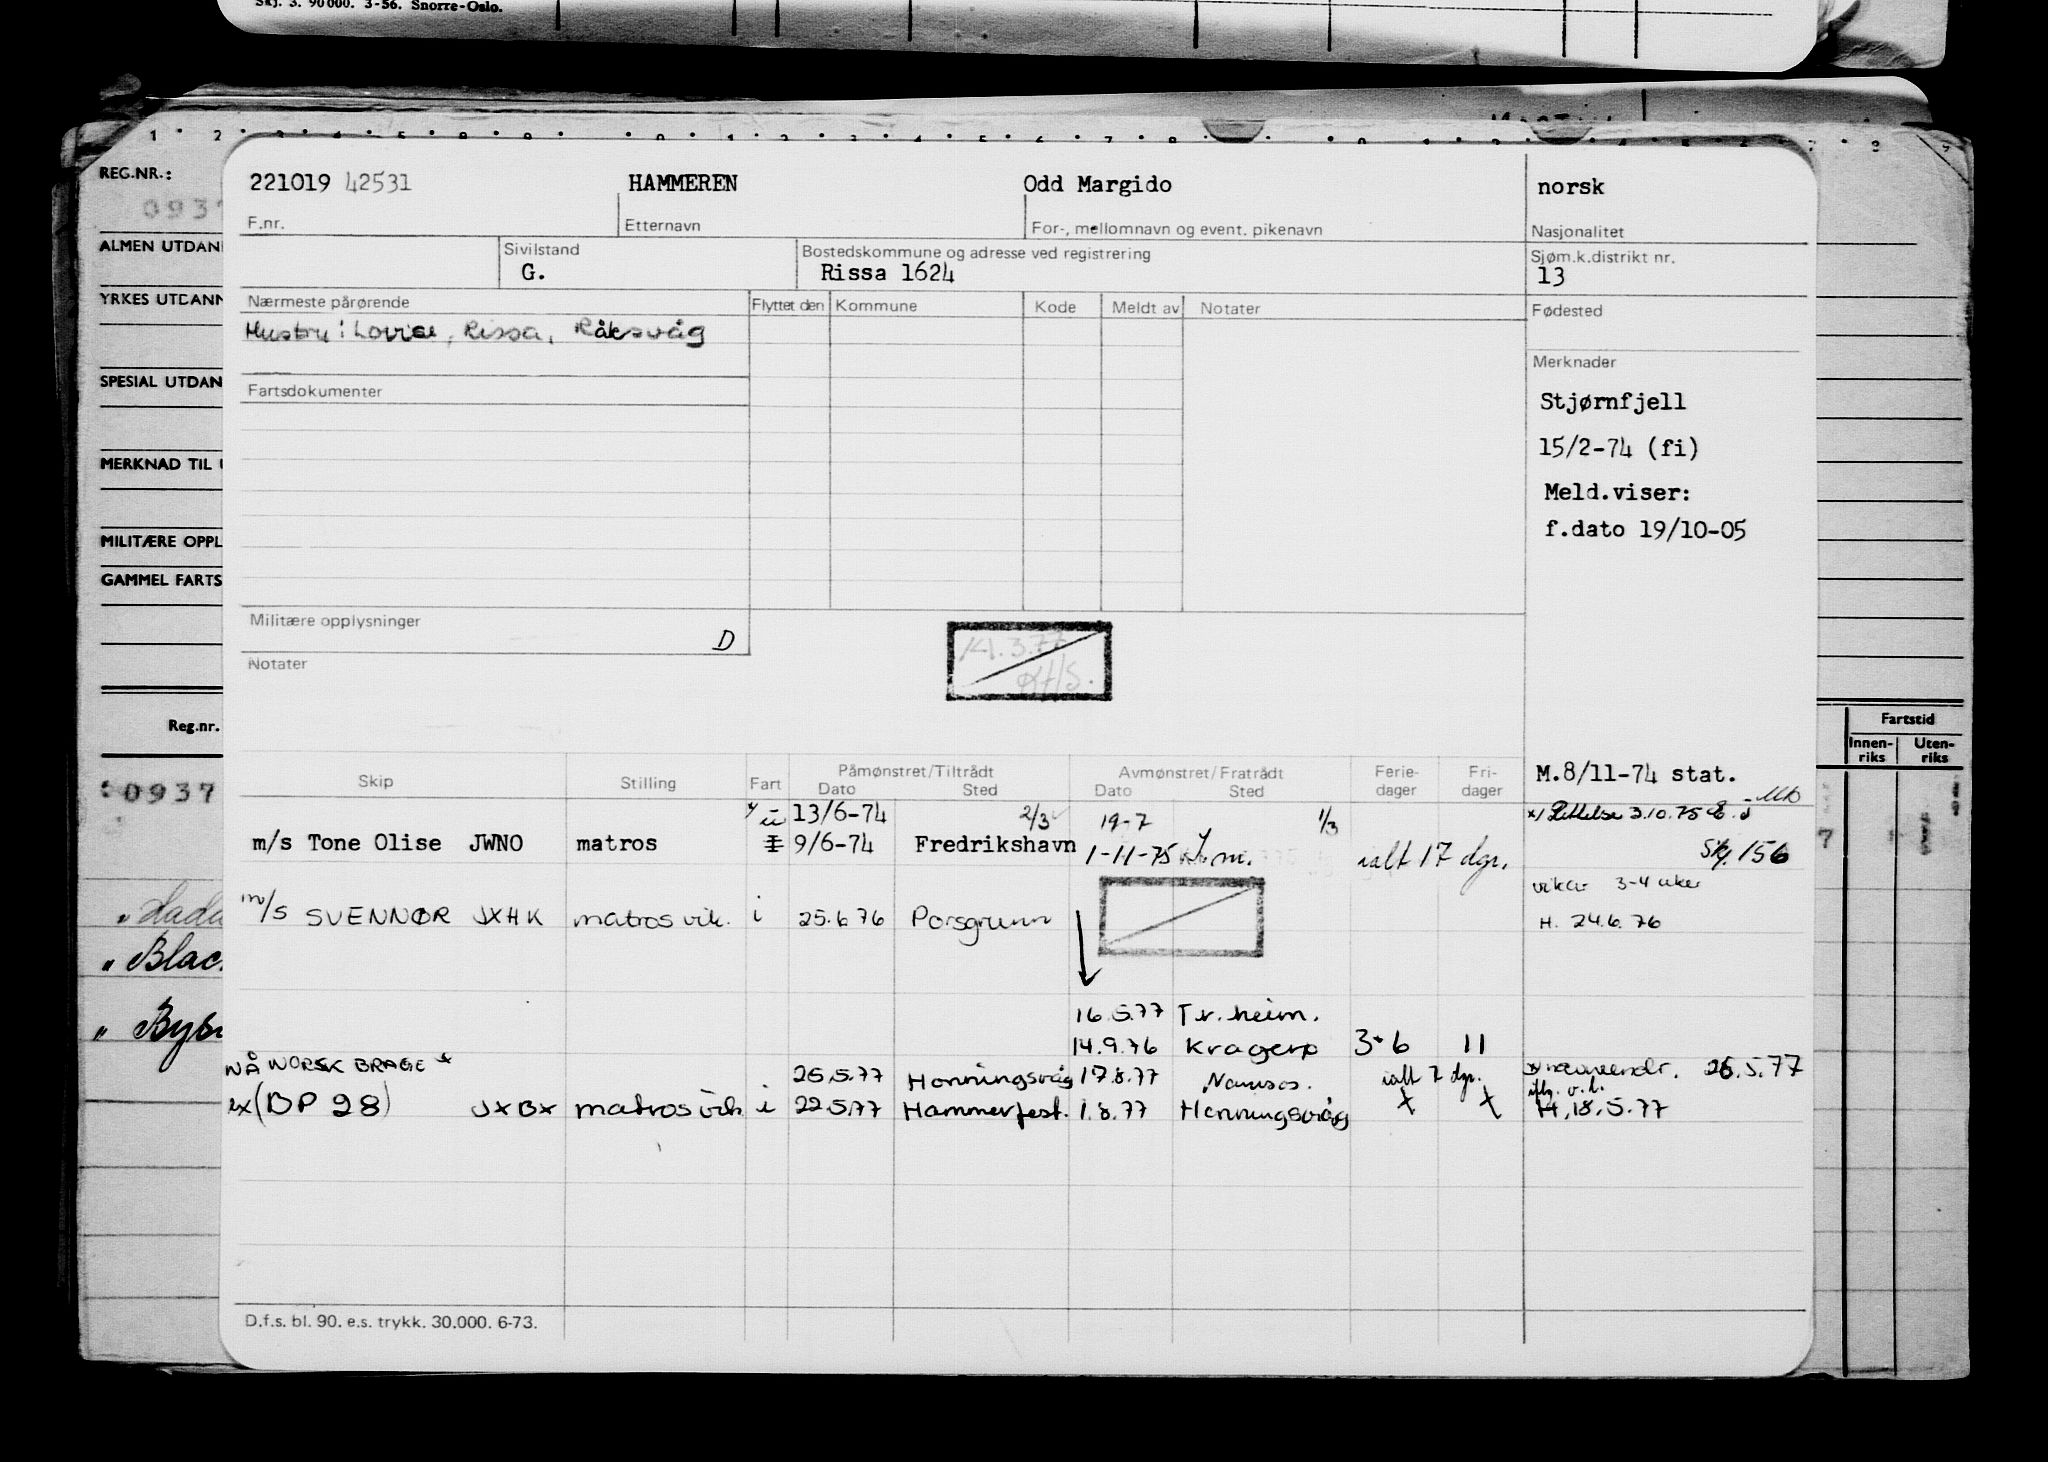 Skj. 3. 90000. 3-56. Snorre-Oslo.
REG.NR.:
0937
ALMEN UTDAN
YRKES UTDANN
SPESIAL UTDAN
MERKNAD TIL U
MILITÆRE OPPL
GAMMEL FARTS
Reg.nr.
0937
Blac.
221019 42531 HAMMEREN Odd Margido norsk
F.nr. Etternavn For-, mellomnavn og event. pikenavn Nasjonalitet
Sivilstand Bostedskommune og adresse ved registrering Sjøm.k.distrikt nr.
G. Rissa 1624 13
Nærmeste pårørende Flyttet den Kommune Kode Meldt av Notater Fødested
Hustru: Lovise, Rissa, Råkvåg
Merknader
Fartsdokumenter
Stjørnfjell
15/2-74 (fi)
Meld.viser:
f.dato 19/10-05
Militære opplysninger D
Notater
Fartstid
Innen-riks Uten-riks
Skip Stilling Fart Påmønstret/Tiltrådt Avmønstret/Fratrådt Ferie-dager Fri-dager
Dato Sted Dato Sted
M.8/11-74 stat.
ü 13/6-74 2/3 19-7 1/3 x/ Rettelse 3.10.75
m/s Tone Olise JWNO matros 9/6-74 Fredrikshavn 1-11-75 ialt 17 dgr. 156
vikar 3-4 uker
m/s SVENNØR JXHK matros vik. i 25.6.76 Porsgrunn H. 24.6.76
16.5.77 Tr.heim.
14.9.76 Kragerø 3 6 11
NÅ NORSK BRAGE * 25.5.77 Honningsvåg 17.8.77 Namsos. ialt 7 dgr. navneendr. 26.5.77
ex (BP 28) JXBX matros vik i 22.5.77 Hammerfest. 1.8.77 Honningsvåg x x H. 18.5.77
D.f.s. bl. 90. e.s. trykk. 30.000. 6-73.